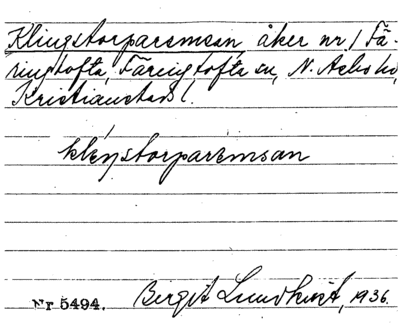 Klingstorparemsan, åker nr 1 Fä-
ringtofta, Färingtofta sn, N. Åsbo hd,
Kristianstads l.
kléŋstorparemsan
Nr 5494. Bergit Lundkvist, 1936.